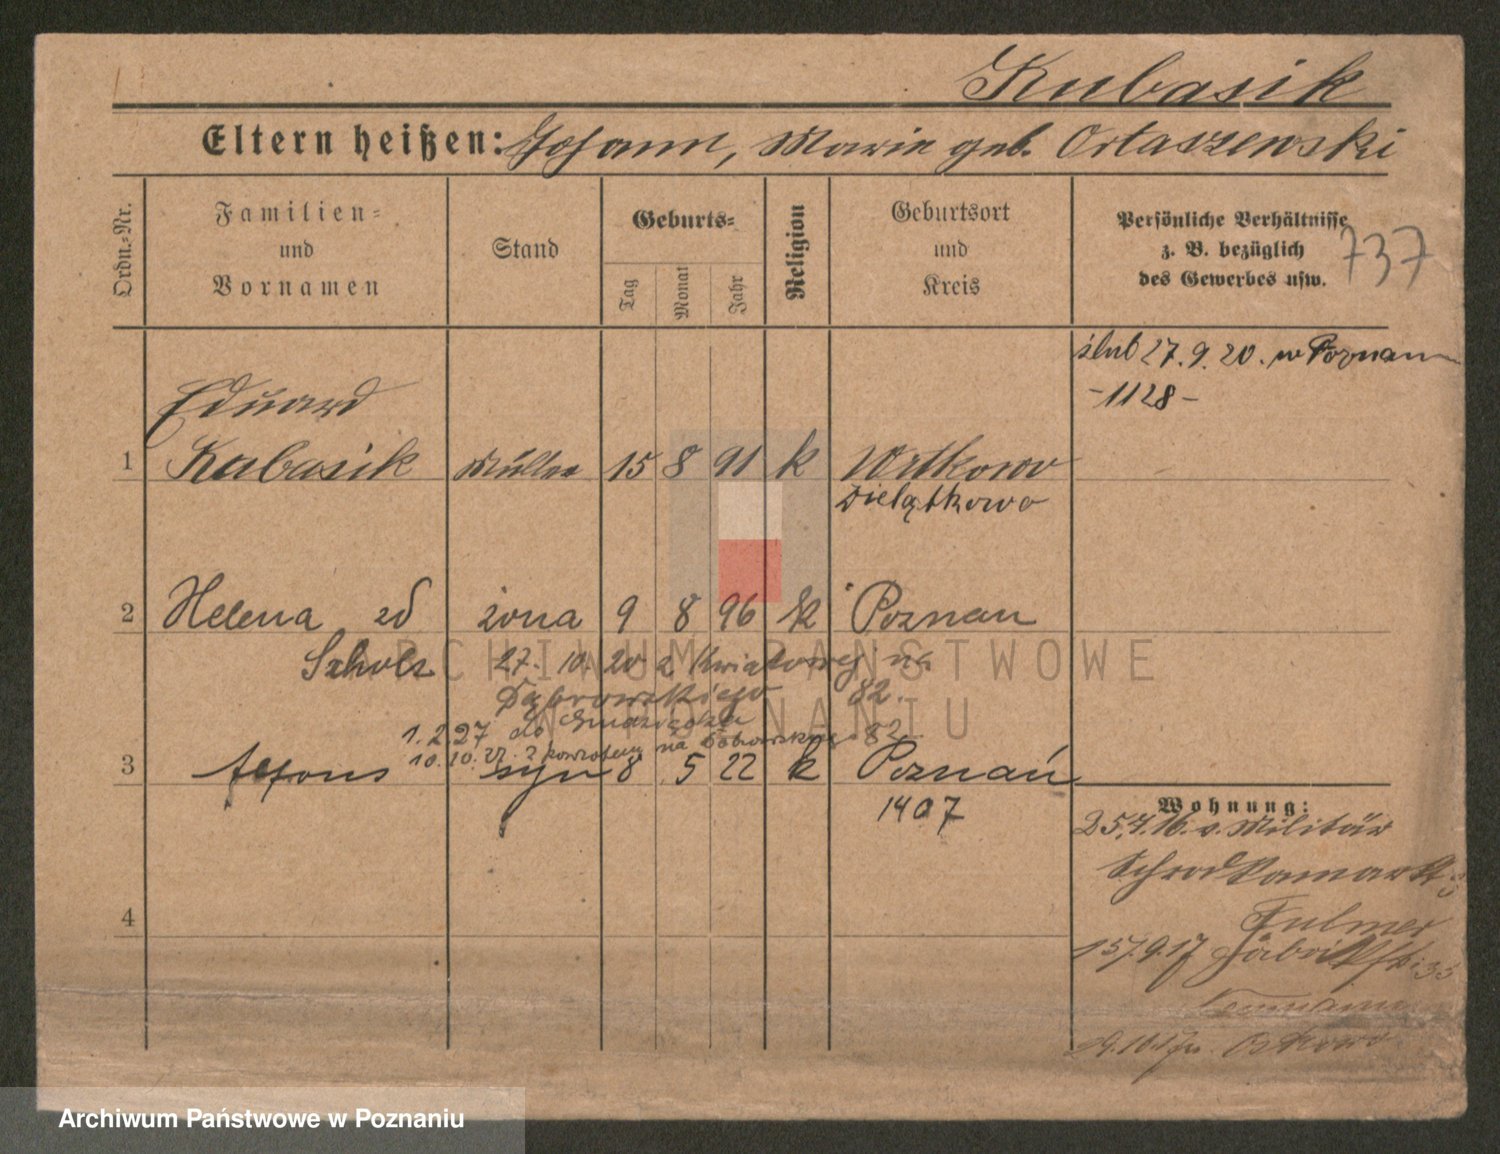 Kubasik
Eltern heißen: Johann, Marie geb. Ortaszewski
Ordn.-Nr.
Familien- und Vornamen
Stand
Geburts-
Tag
Monat
Jahr
Religion
Geburtsort und Kreis
Persönliche Verhältnisse z. B. bezüglich des Gewerbes usw.
737
ślub 27.9.20. w Poznan
-1128-
Eduard
1 Kubasik Müller 15 8 91 k Witkowo
Dielątkowo
2 Helena zd żona 9 8 96 k Poznan
Scholz 27. 10. 20 z na
Dąbrowskiego 82.
1.2.27 do
10.10.27. z na 82
3 Alfons syn 8 5 22 k Poznań
1407
Wohnung:
25.4.16. v. Militär
Schrodkamarkt
4
15.9.17
ARCHIWUM PAŃSTWOWE
W POZNANIU
Archiwum Państwowe w Poznaniu